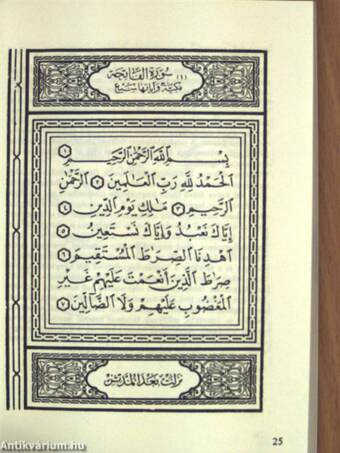 (١) سُورَةِ الفَاتِحَةِ
مَكِيَّة وَآيَاتُهَا سَبْع
بِسْمِ ٱللَّهِ ٱلرَّحْمَٰنِ ٱلرَّحِيمِ ١
ٱلْحَمْدُ لِلَّهِ رَبِّ ٱلْعَٰلَمِينَ ٢ ٱلرَّحْمَٰنِ
ٱلرَّحِيمِ ٣ مَٰلِكِ يَوْمِ ٱلدِّينِ ٤
إِيَّاكَ نَعْبُدُ وَإِيَّاكَ نَسْتَعِينُ ٥
ٱهْدِنَا ٱلصِّرَٰطَ ٱلْمُسْتَقِيمَ ٦
صِرَٰطَ ٱلَّذِينَ أَنْعَمْتَ عَلَيْهِمْ غَيْرِ
ٱلْمَغْضُوبِ عَلَيْهِمْ وَلَا ٱلضَّآلِّينَ ٧
نَزَلَتْ بَعْدَ المُدَّثِّر
25
Antikvárium.hu